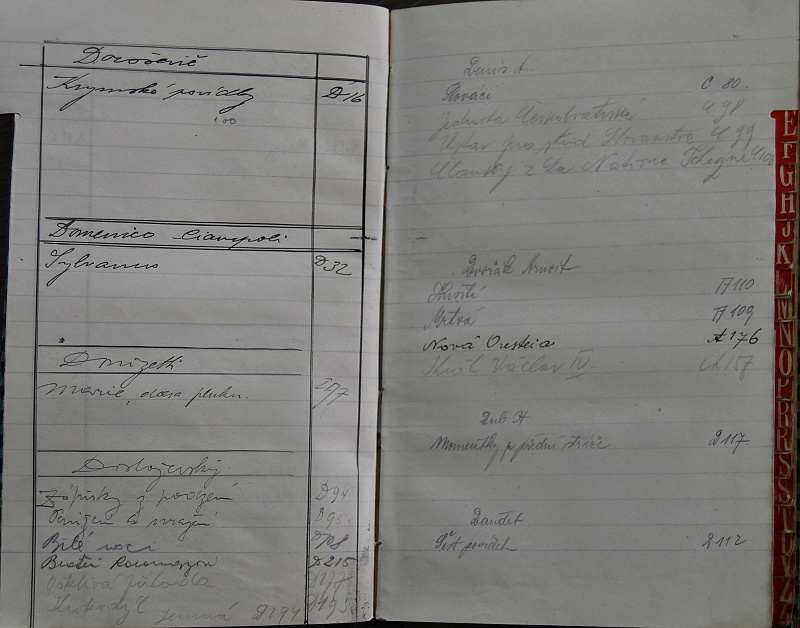 Dorošević
Krymské povídky D 16
100
Domenico Ciampoli
Sylvanus D 32
Donizetti
Marie, dcera pluku. 277
Dostojevský.
Zápisky z podzemí D 94
Ponížení a uražení D 95.
Bílé noci D 98
Bratři Karamazovi D 215
Ošklivá příhoda D 177
Krokodýl D 195
Jemná D 194
Denis A.
Slováci C 80.
Jednota Českobratrská U 98
Ústav pro stud. Slovanstva U 99
Články z La Nation Tchèque
Dvořák Arnošt
Husité A 110
Mrtvá A 109
Nová Oresteia A 176
Král Václav IV. A 157
Dub A
Momentky p. přední stráže D 117
Daudet
Pět povídek D 112
E
F
G
H
J
K
L
M
N
O
P
R
Ř
S
Š
T
U
V
Z
Ž